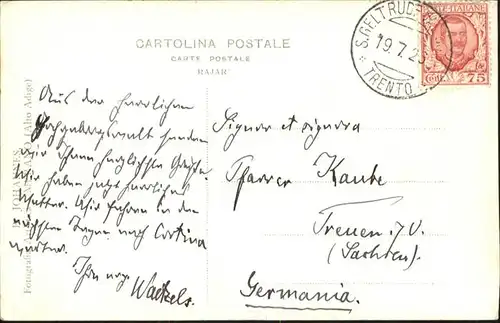 CARTOLINA POSTALE
CARTE POSTALE
S. GELTRUDE
19.7.2
* TRENTO
POSTE ITALIANE
75
Aus der herrlichen
Hochgebirgswelt senden
wir Ihnen herzlichste Grüße.
Wir haben jetzt herrliches
Wetter. Wir fahren in den
nächsten Tagen nach Cortina
weiter.
Signor et signora
Pfarrer
Treuen i/V.
(Sachsen)
Germania.